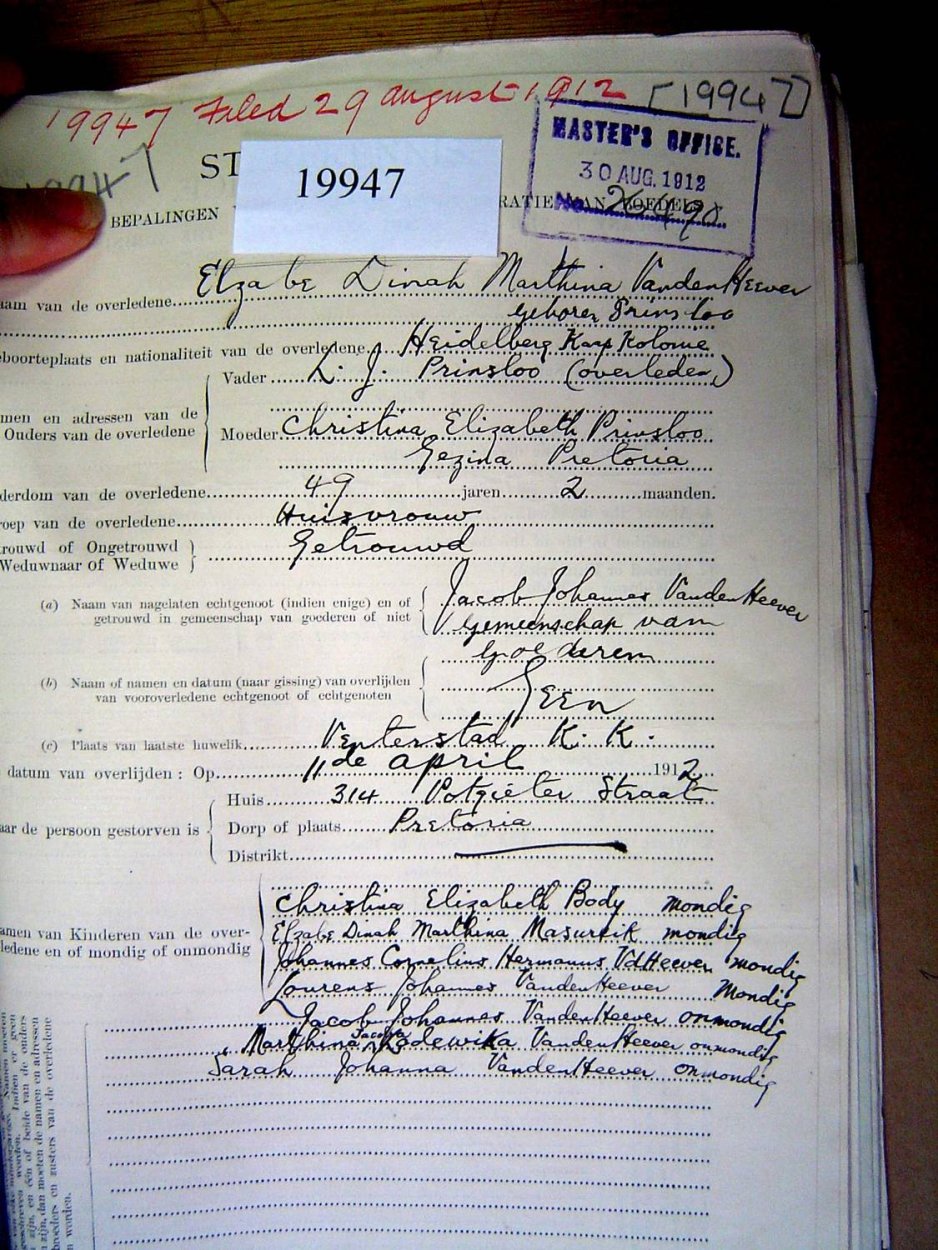 19947 Filed 29 August 1912 [19947]
MASTER'S OFFICE.
30 AUG. 1912
No.
ST
19947
BEPALINGEN
RATIE VAN BOEDELS
aam van de overledene Elzabe Dinah Marthina VandenHeever
geboren Prinsloo
eboorteplaats en nationaliteit van de overledene Heidelberg Kaap Kolonie
Vader L. J. Prinsloo (overleden)
men en adressen van de
Ouders van de overledene
Moeder Christina Elizabeth Prinsloo
Gezina Pretoria
derdom van de overledene 49 jaren 2 maanden.
roep van de overledene Huisvrouw
rouwd of Ongetrouwd
Weduwnaar of Weduwe
Getrouwd
(a) Naam van nagelaten echtgenoot (indien enige) en of
getrouwd in gemeenschap van goederen of niet
Jacob Johannes VandenHeever
Gemeenschap van
Goederen
(b) Naam of namen en datum (naar gissing) van overlijden
van vooroverledene echtgenoot of echtgenoten
Geen
(c) Plaats van laatste huwelik Venterstad K. K.
datum van overlijden : Op 11de April 1912
Huis 314 Potgieter Straat
aar de persoon gestorven is
Dorp of plaats Pretoria
Distrikt
amen van Kinderen van de over-
ledene en of mondig of onmondig
Christina Elizabeth Body mondig
Elzabe Dinah Marthina mondig
Johannes Cornelius Hermanus VdHeever mondig
Lourens Johannes VandenHeever Mondig
Jacob Johannes VandenHeever onmondig
Marthina Jacoba Lodewika VandenHeever onmondig
Sarah Johanna VandenHeever onmondig
zijn, en één of beide van de ouders
zijn, dan moeten de namen en adressen
broeders en zusters van de overledene
n worden.